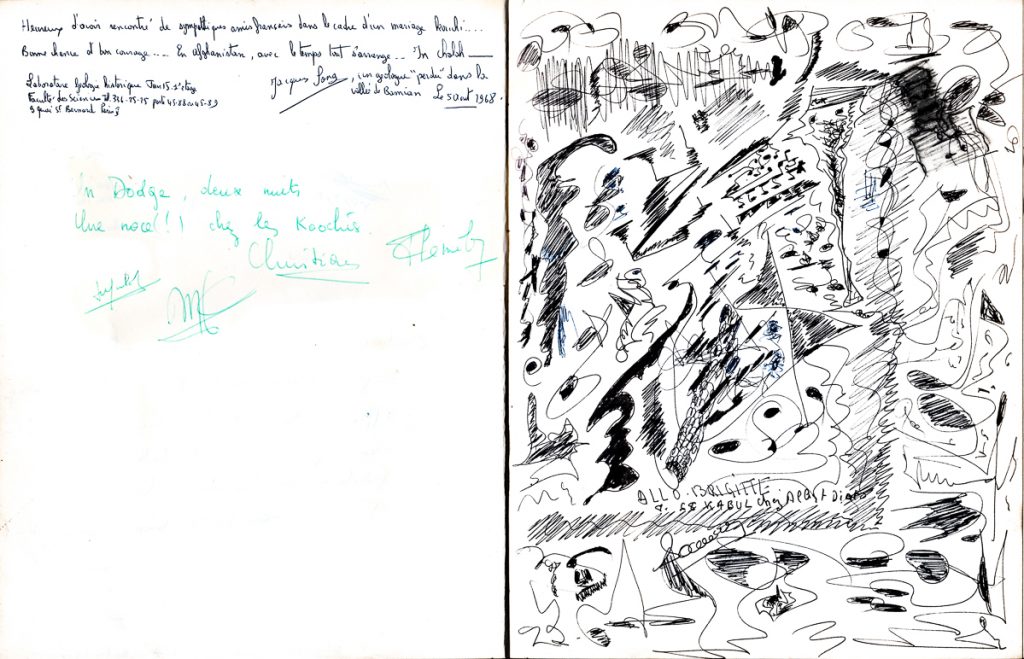 Heureux d'avoir rencontré de sympathiques amis français dans le cadre d'un mariage Kuchi....
Bonne chance et bon courage.... En Afghanistan, avec le temps tout s'arrange... "In chalah
Jacques Lang, un géologue "perdu" dans la
vallée de Bamian Le 5 Oout 1968.
Laboratoire Géologie historique Tour 15. 3e étage
Faculté des Sciences Tl. 336-25-25 poste 45-88 ou 45-89
9 quai St Bernard Paris 5
En Dodge, deux nuits
Une noce!! chez les Koochis.
Christian
ALLO BRIGITTE
68 KABUL chez